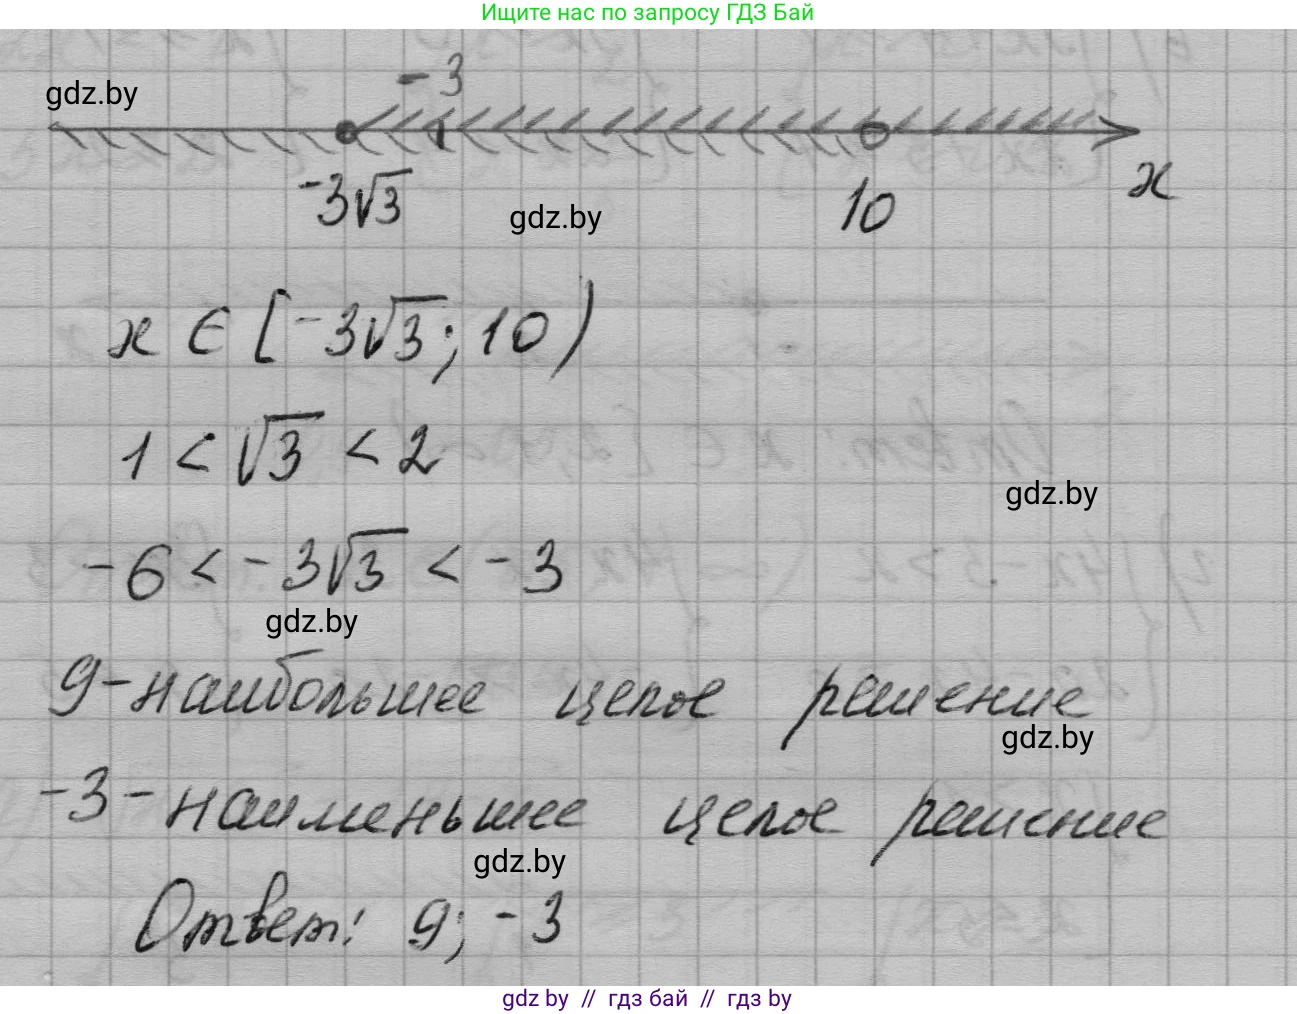 Ищите нас по запросу ГДЗ Бай
-3
gdz.by
-3√3
gdz.by
10
x
x ∈ [-3√3; 10)
1 < √3 < 2
gdz.by
-6 < -3√3 < -3
gdz.by
9-наибольшее целое решение
gdz.by
-3-наименьшее целое решение
gdz.by
Ответ: 9; -3
gdz by // гдз бай // гдз by